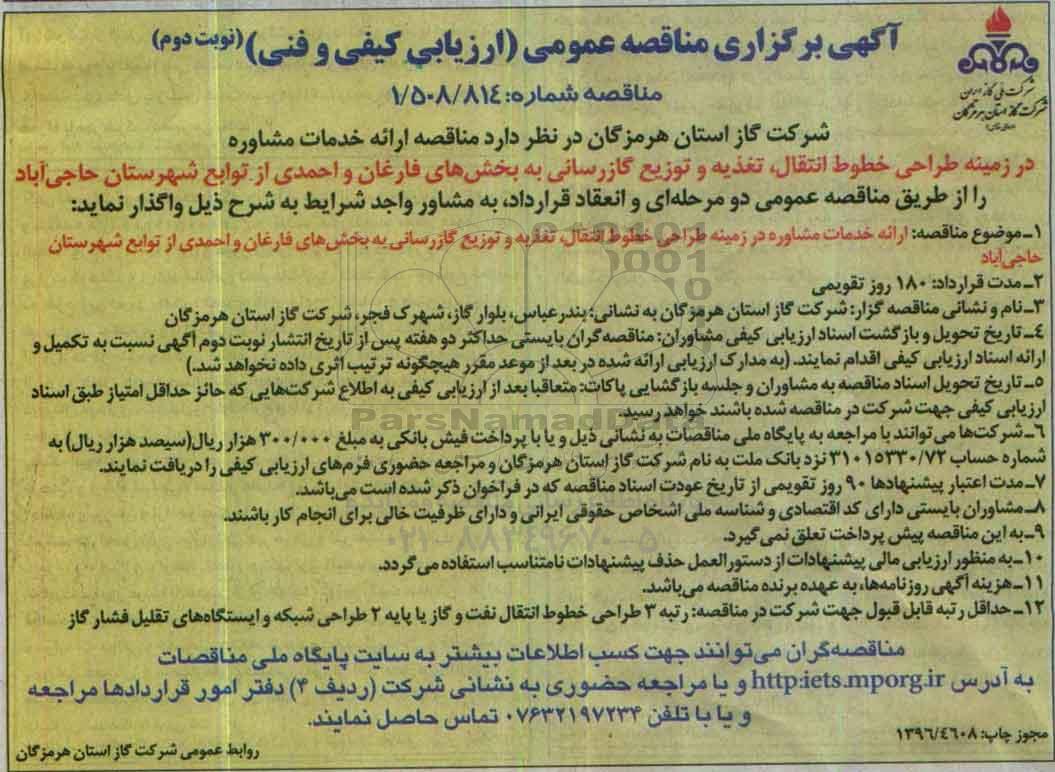 آگهی برگزاری مناقصه عمومی (ارزیابی کیفی و فنی) (نوبت دوم)
شرکت ملی گاز ایران
شرکت گاز استان هرمزگان
مناقصه شماره: ۱/۵۰۸/۸۱٤
شرکت گاز استان هرمزگان در نظر دارد مناقصه ارائه خدمات مشاوره
در زمینه طراحی خطوط انتقال، تغذیه و توزیع گازرسانی به بخش‌های فارغان و احمدی از توابع شهرستان حاجی‌آباد
را از طریق مناقصه عمومی دو مرحله‌ای و انعقاد قرارداد، به مشاور واجد شرایط به شرح ذیل واگذار نماید:
۱ـ موضوع مناقصه: ارائه خدمات مشاوره در زمینه طراحی خطوط انتقال، تغذیه و توزیع گازرسانی به بخش‌های فارغان و احمدی از توابع شهرستان
حاجی‌آباد
۲ـ مدت قرارداد: ۱۸۰ روز تقویمی
۳ـ نام و نشانی مناقصه گزار: شرکت گاز استان هرمزگان به نشانی: بندرعباس، بلوار گاز، شهرک فجر، شرکت گاز استان هرمزگان
٤ـ تاریخ تحویل و بازگشت اسناد ارزیابی کیفی مشاوران: مناقصه گران بایستی حداکثر دو هفته پس از تاریخ انتشار نوبت دوم آگهی نسبت به تکمیل و
ارائه اسناد ارزیابی کیفی اقدام نمایند. (به مدارک ارزیابی ارائه شده در بعد از موعد مقرر هیچگونه ترتیب اثری داده نخواهد شد.)
۵ـ تاریخ تحویل اسناد مناقصه به مشاوران و جلسه بازگشایی پاکات: متعاقبا بعد از ارزیابی کیفی به اطلاع شرکت‌هایی که حائز حداقل امتیاز طبق اسناد
ارزیابی کیفی جهت شرکت در مناقصه شده باشند خواهد رسید.
ParsNamadData
٦ـ شرکت‌ها می‌توانند با مراجعه به پایگاه ملی مناقصات به نشانی ذیل و یا با پرداخت فیش بانکی به مبلغ ۳۰۰/۰۰۰ هزار ریال(سیصد هزار ریال) به
شماره حساب ۳۱۰۱۵۳۳۰/۷۲ نزد بانک ملت به نام شرکت گاز استان هرمزگان و مراجعه حضوری فرم‌های ارزیابی کیفی را دریافت نمایند.
۷ـ مدت اعتبار پیشنهادها ۹۰ روز تقویمی از تاریخ عودت اسناد مناقصه که در فراخوان ذکر شده است می‌باشد.
۸ـ مشاوران بایستی دارای کد اقتصادی و شناسه ملی اشخاص حقوقی ایرانی و دارای ظرفیت خالی برای انجام کار باشند.
۹ـ به این مناقصه پیش پرداخت تعلق نمی‌گیرد.
۰۲۱-۸۸۳۴۹۶۷۰-۵
۱۰ـ به منظور ارزیابی مالی پیشنهادات از دستورالعمل حذف پیشنهادات نامتناسب استفاده می‌گردد.
۱۱ـ هزینه آگهی روزنامه‌ها، به عهده برنده مناقصه می‌باشد.
۱۲ـ حداقل رتبه قابل قبول جهت شرکت در مناقصه: رتبه ۳ طراحی خطوط انتقال نفت و گاز یا پایه ۲ طراحی شبکه و ایستگاه‌های تقلیل فشار گاز
مناقصه‌گران می‌توانند جهت کسب اطلاعات بیشتر به سایت پایگاه ملی مناقصات
به آدرس http:iets.mporg.ir و یا مراجعه حضوری به نشانی شرکت (ردیف ۴) دفتر امور قراردادها مراجعه
و یا با تلفن ۰۷۶۳۲۱۹۷۲۳۴ تماس حاصل نمایند.
مجوز چاپ: ۱۳۹٦/٤٦۰۸
روابط عمومی شرکت گاز استان هرمزگان